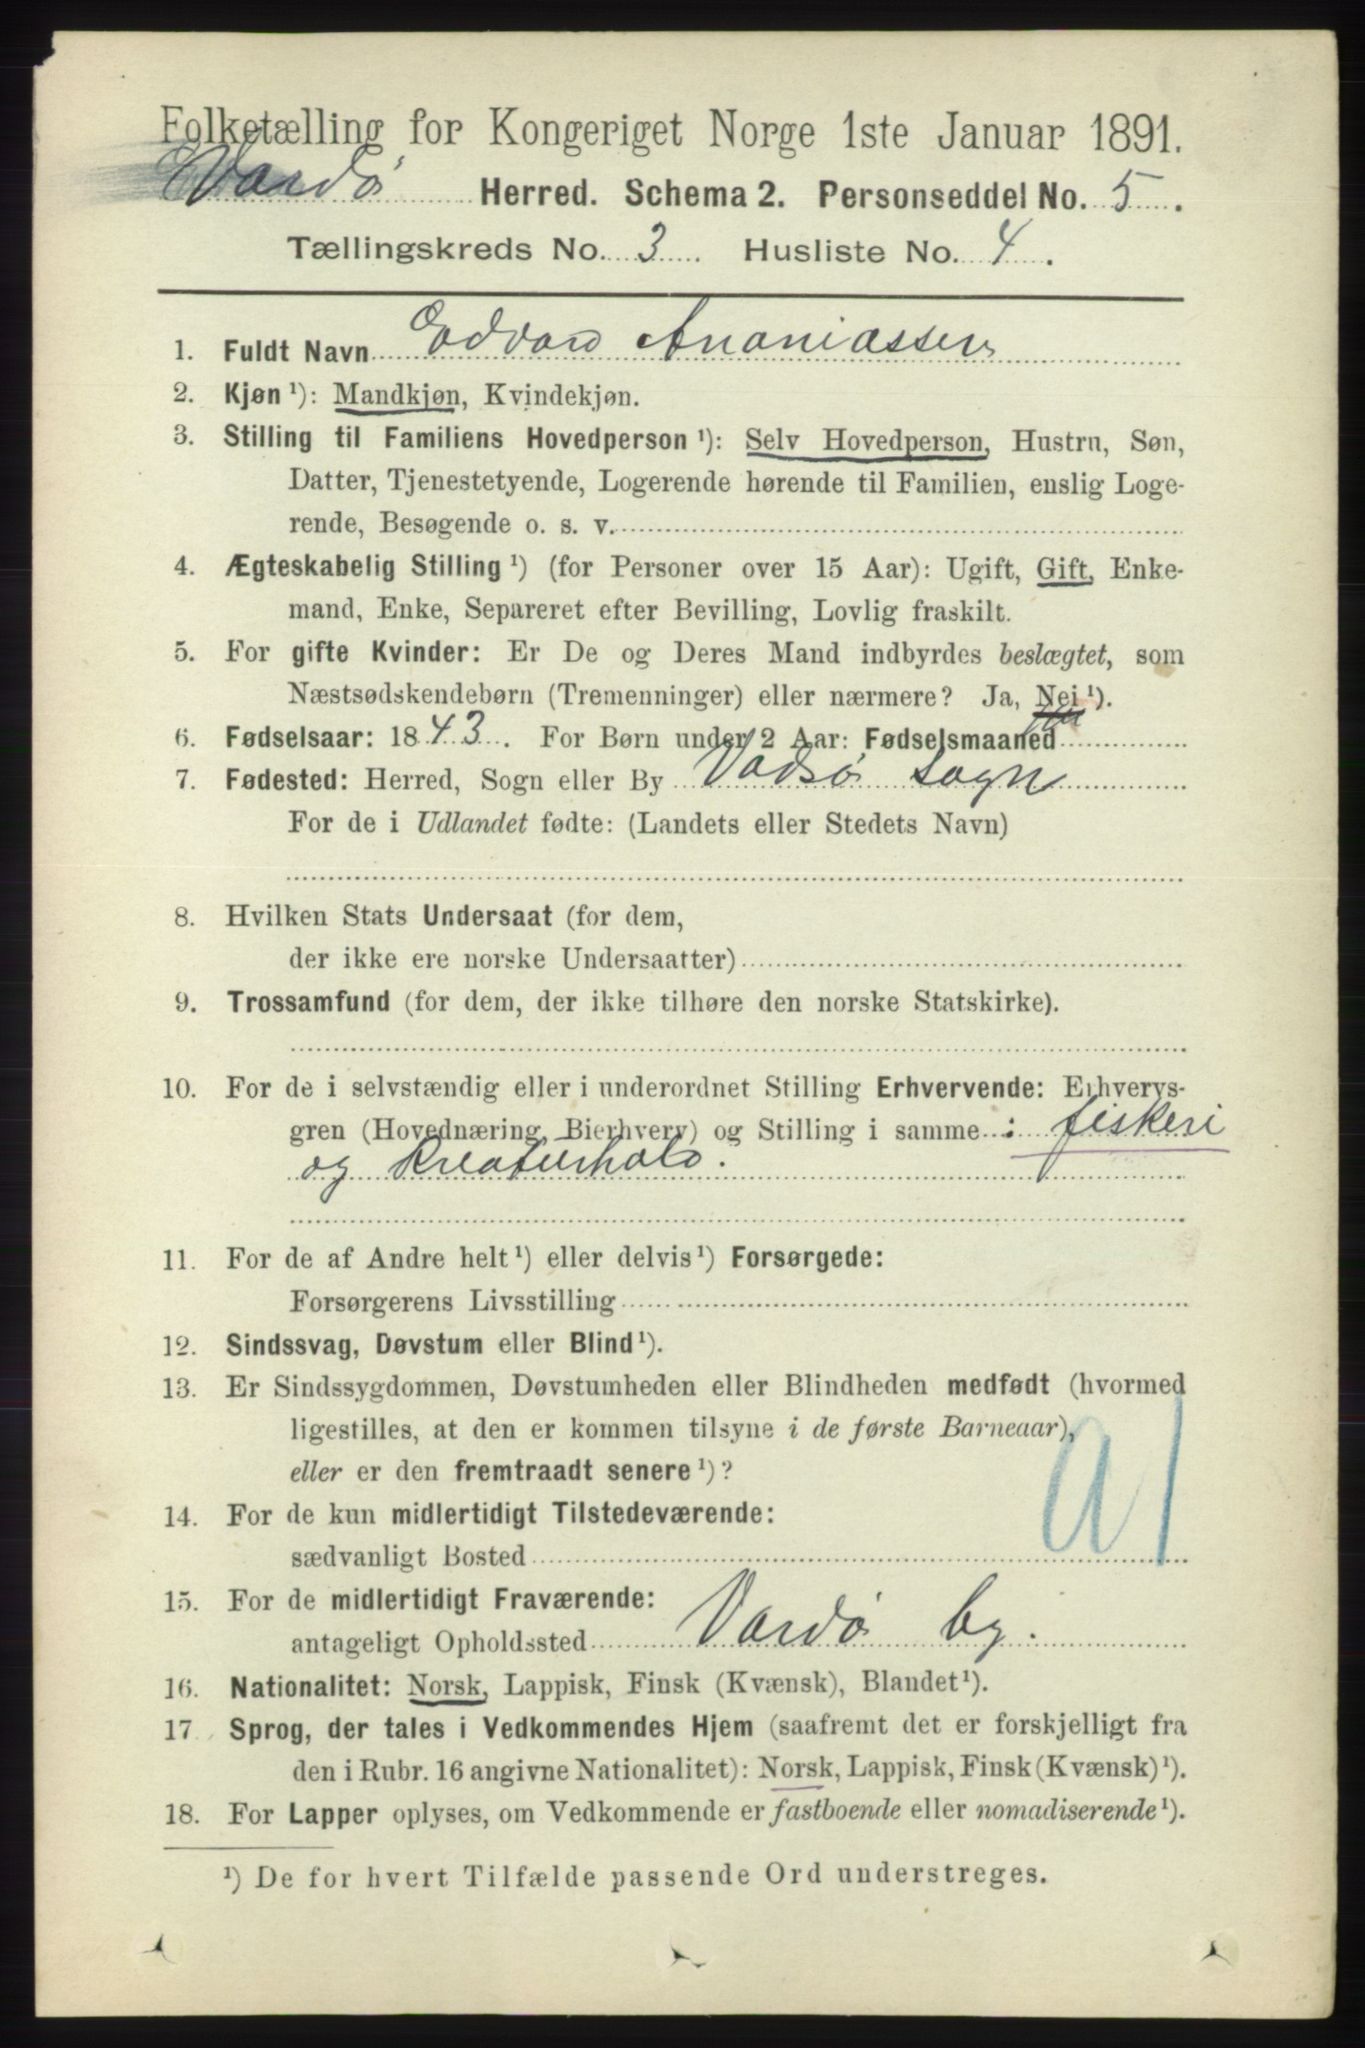 Folketælling for Kongeriget Norge 1ste Januar 1891.
Vardø Herred. Schema 2. Personseddel No. 5.
Tællingskreds No. 3 Husliste No. 4.
1. Fuldt Navn Edvard Ananiassen
2. Kjøn ¹): Mandkjøn, Kvindekjøn.
3. Stilling til Familiens Hovedperson ¹): Selv Hovedperson, Hustru, Søn,
Datter, Tjenestetyende, Logerende hørende til Familien, enslig Loge-
rende, Besøgende o. s. v.
4. Ægteskabelig Stilling ¹) (for Personer over 15 Aar): Ugift, Gift, Enke-
mand, Enke, Separeret efter Bevilling, Lovlig fraskilt.
5. For gifte Kvinder: Er De og Deres Mand indbyrdes beslægtet, som
Næstsødskendebørn (Tremenninger) eller nærmere? Ja, Nei ¹).
6. Fødselsaar: 1843. For Børn under 2 Aar: Fødselsmaaned
7. Fødested: Herred, Sogn eller By Vadsø Sogn
For de i Udlandet fødte: (Landets eller Stedets Navn)
8. Hvilken Stats Undersaat (for dem,
der ikke ere norske Undersaatter)
9. Trossamfund (for dem, der ikke tilhøre den norske Statskirke).
10. For de i selvstændig eller i underordnet Stilling Erhvervende: Erhvervs-
gren (Hovednæring, Bierhverv) og Stilling i samme : fiskeri
og Kreaturhold.
11. For de af Andre helt ¹) eller delvis ¹) Forsørgede:
Forsørgerens Livsstilling
12. Sindssvag, Døvstum eller Blind ¹).
13. Er Sindssygdommen, Døvstumheden eller Blindheden medfødt (hvormed
ligestilles, at den er kommen tilsyne i de første Barneaar),
eller er den fremtraadt senere ¹)?
14. For de kun midlertidigt Tilstedeværende:
sædvanligt Bosted
15. For de midlertidigt Fraværende:
antageligt Opholdssted Vardø by.
16. Nationalitet: Norsk, Lappisk, Finsk (Kvænsk), Blandet ¹).
17. Sprog, der tales i Vedkommendes Hjem (saafremt det er forskjelligt fra
den i Rubr. 16 angivne Nationalitet): Norsk, Lappisk, Finsk (Kvænsk) ¹).
18. For Lapper oplyses, om Vedkommende er fastboende eller nomadiserende ¹).
¹) De for hvert Tilfælde passende Ord understreges.